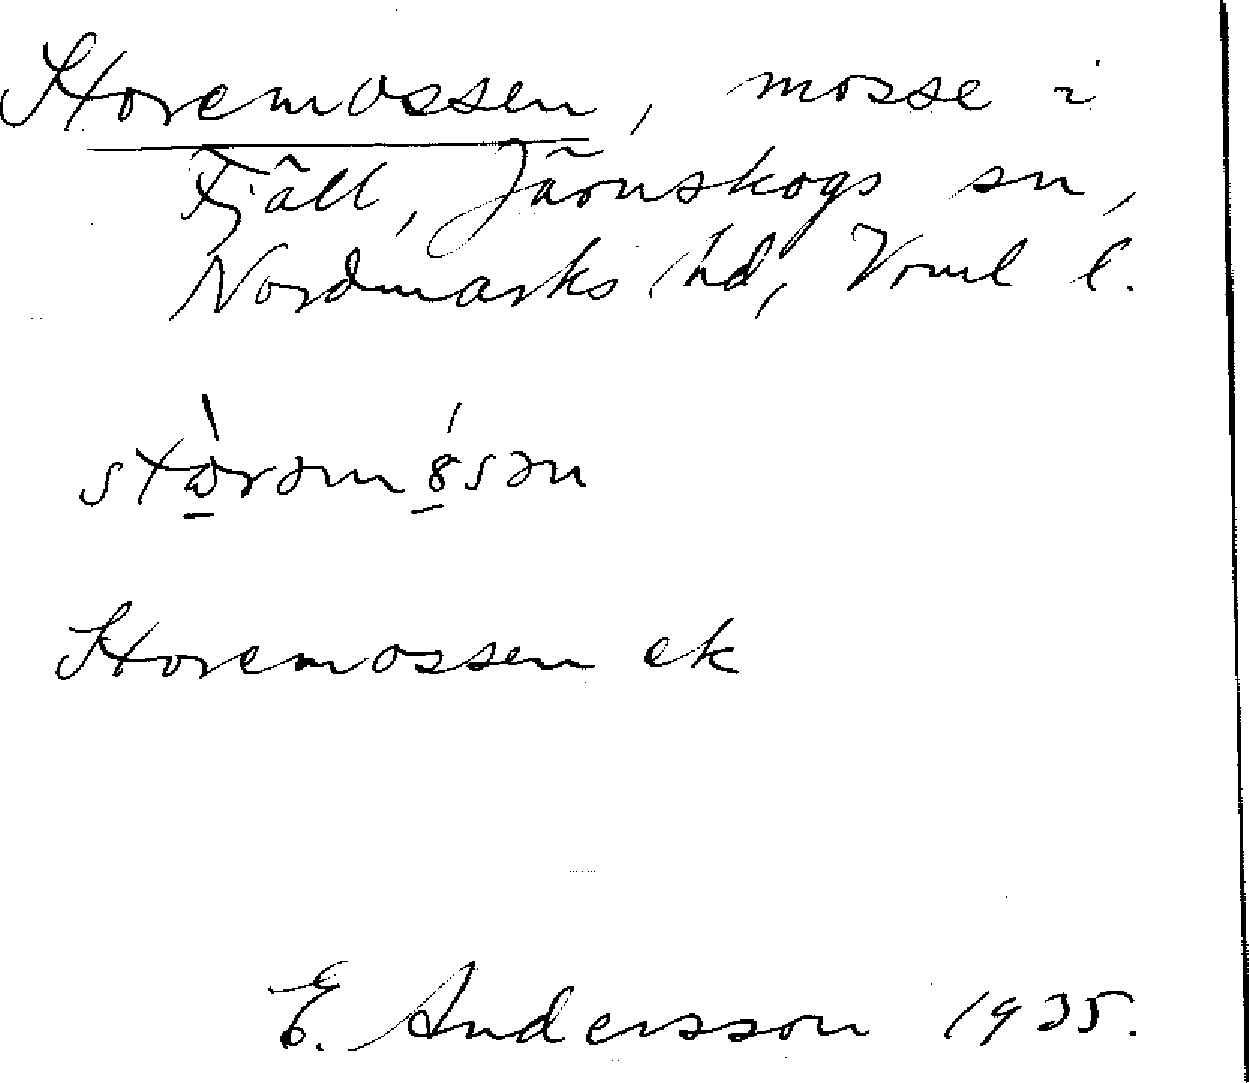 Storemossen, mosse i
Fjäll, Järnskogs sn,
Nordmarks hd, Vrml l.
Storemossen ek
E. Andersson 1935.